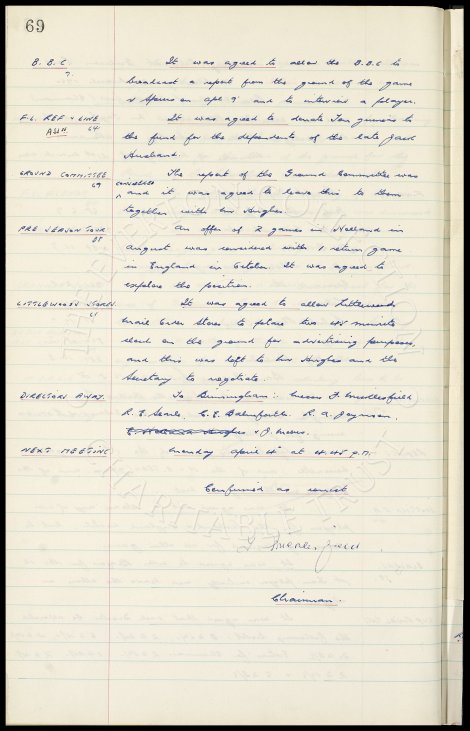 69
B.B.C. ? It was agreed to allow the B.B.C to
broadcast a report from the ground of the game
v Spurs on Apl 9 and to interview a player.
F.L. REF & LINE It was agreed to donate Ten guineas to
ASSN 64 the fund for the dependents of the late Jack
Husband.
GROUND COMMITTEE The report of the Ground Committee was
69 considered and it was agreed to leave this to them
together with Mr Hughes.
PRE SEASON TOUR An offer of 2 games in Holland in
August was considered with 1 return game
in England in October. It was agreed to
explore the position.
LITTLEWOODS STORES It was agreed to allow Littlewoods
Mail Order Stores to place two
on the ground for advertising purposes,
and this was left to Mr Hughes and the
Secretary to negotiate.
DIRECTORS AWAY. To Birmingham: Messrs F. Micklesfield
R. E. Searle, C. E. Balmforth. R. A. Joynson.
Hughes & J. Mears.
NEXT MEETING Monday April 4th at 4.45 p.m.
Confirmed as correct
Chairman.
THE CHELSEA FOOTBALL CLUB
CHARITABLE TRUST